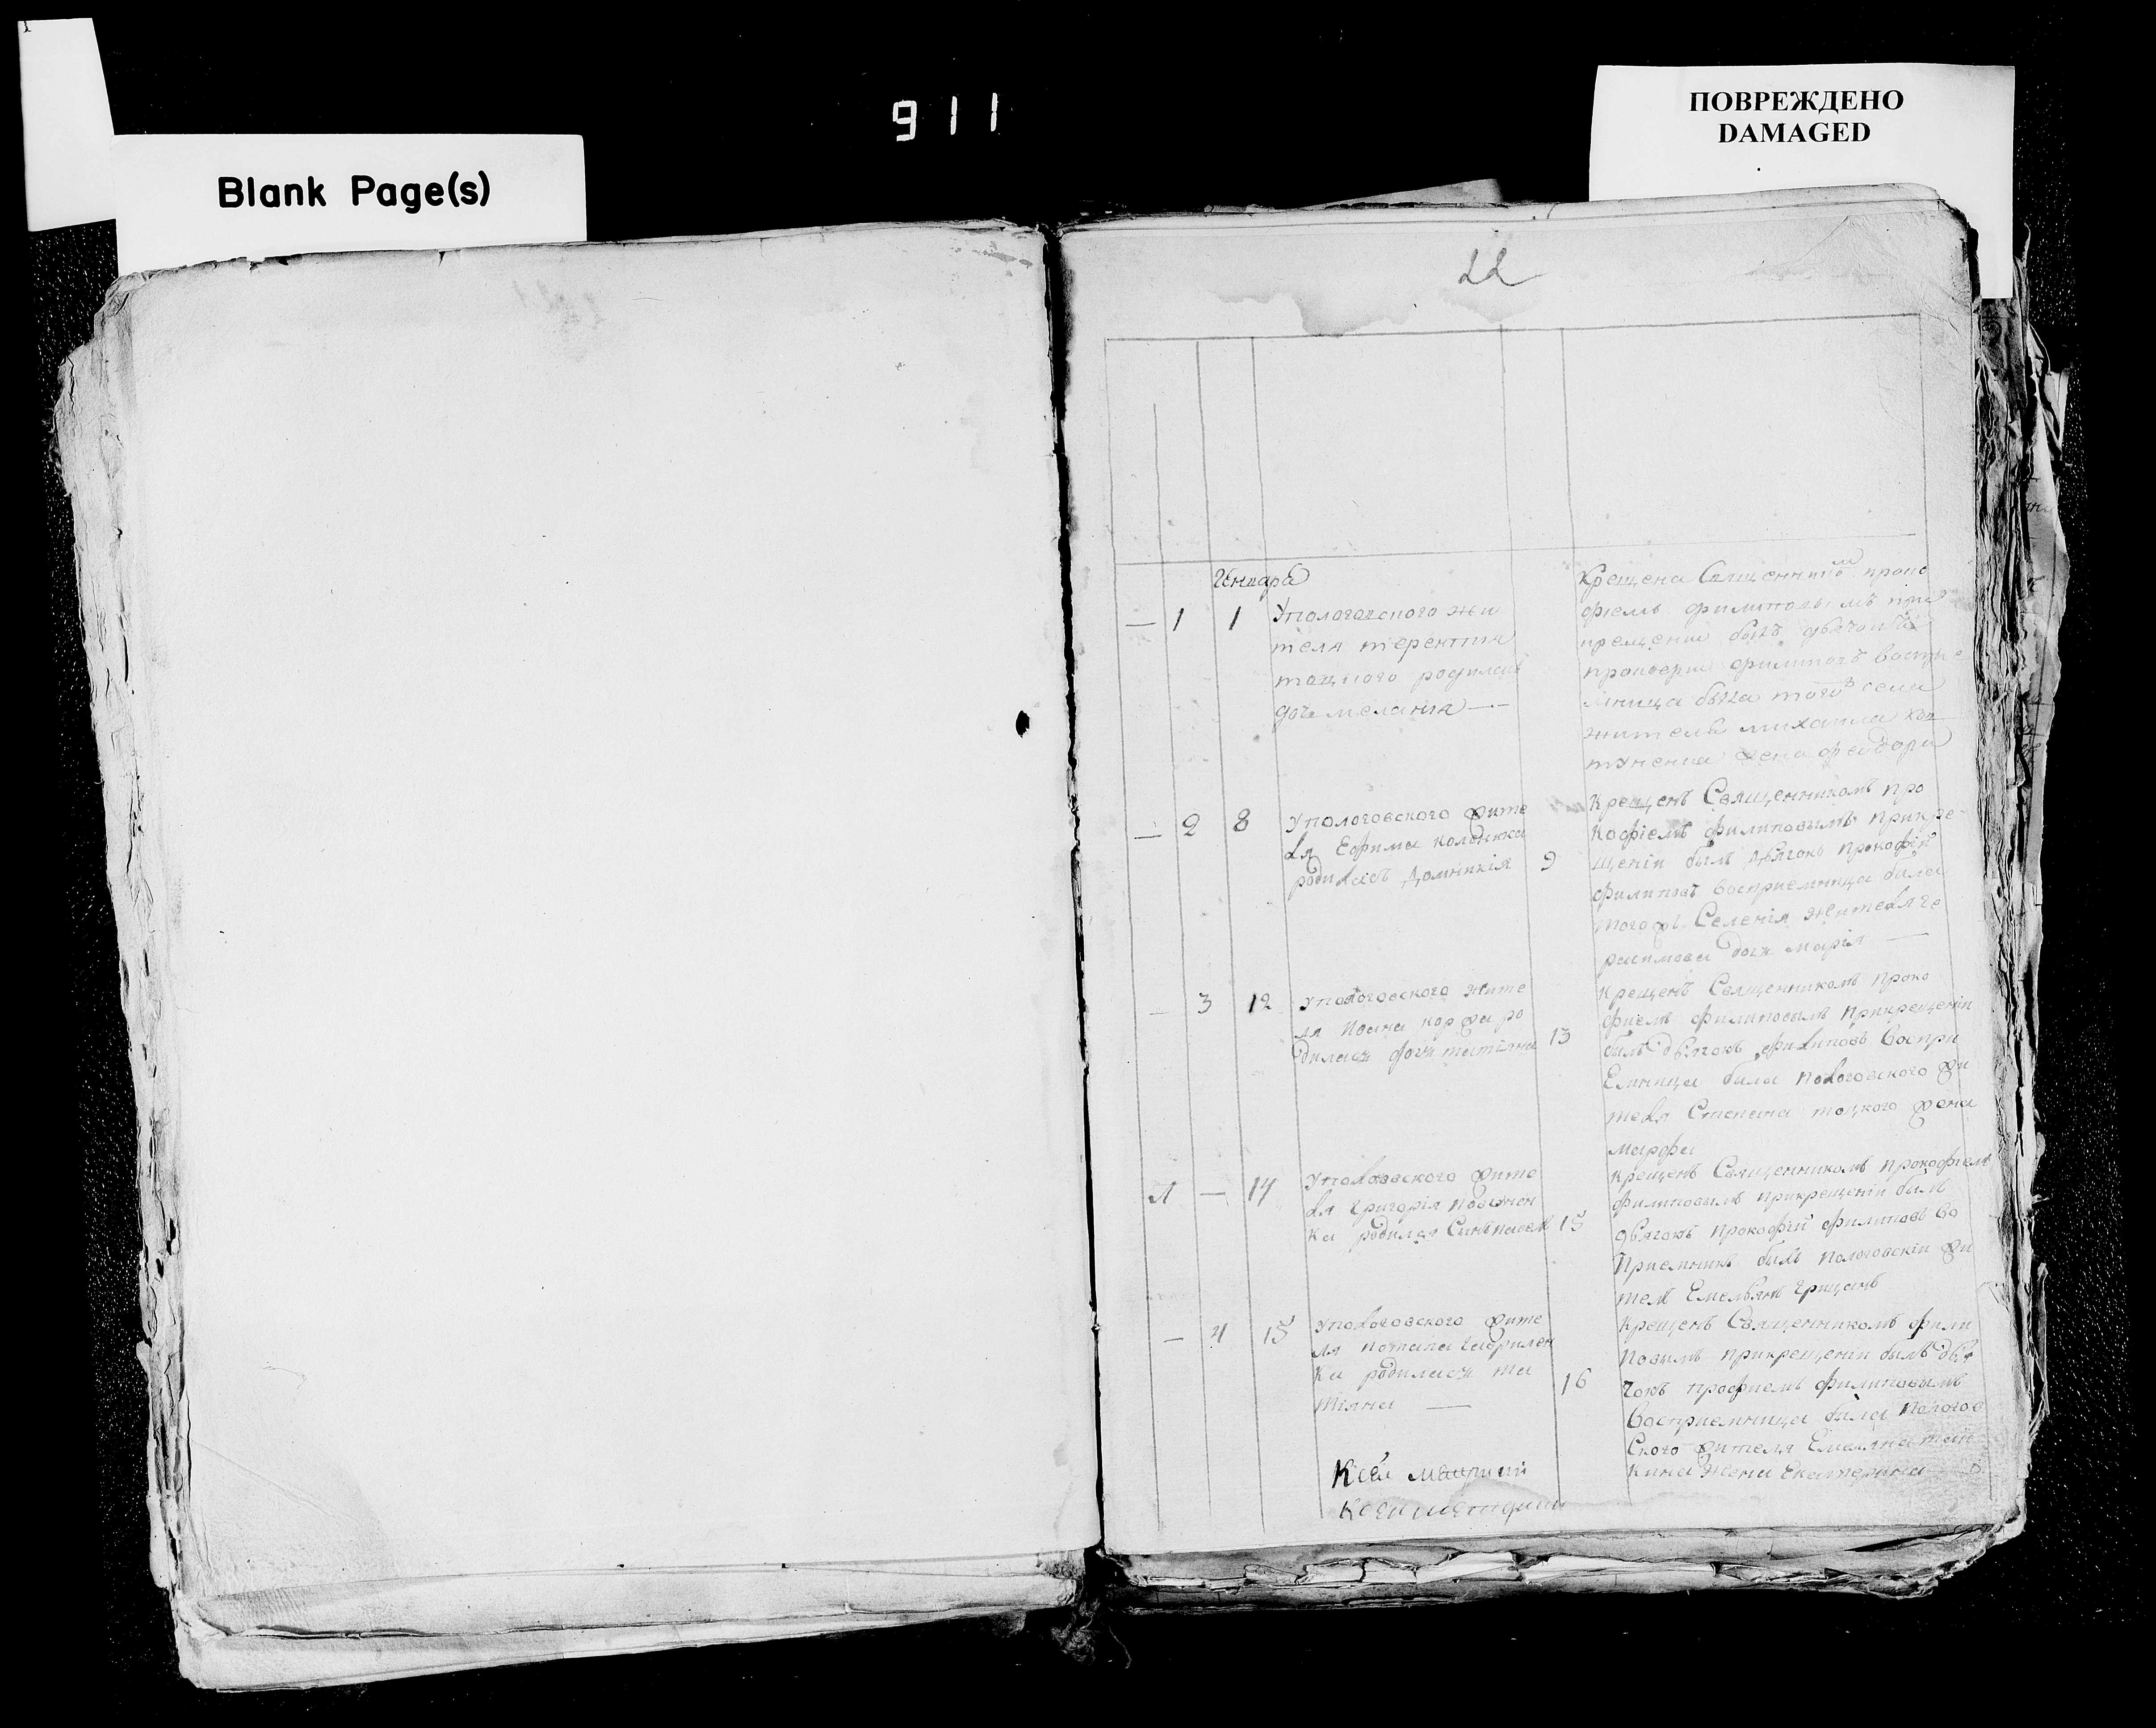 911
Blank Page(s)
ПОВРЕЖДЕНО
DAMAGED
22
Генваря
— 1 1 Упологовского жи
теля терентия
тацкого родилась
дочь меланія —
Крещена Священникомъ проко
фіемъ филиповымъ при
крещении былъ дьячокъ
прокофий филиповъ воспри
мница была того села
жителя михаила
жена феодора
— 2 8 Упологовского жите
ля Ефима
родилась Домникія
9
Крещенъ Священникомъ Про
кофіемъ филиповымъ прикре-
щеніи былъ дьячокъ прокофій
филиповъ восприемница была
того ж Селенія жителя ге
расимова дочь марія —
— 3 12 Упологовского жите
ля Иоана коржа ро
дилась дочь татіяна
13
Крещенъ Священникомъ Проко
фиемъ филиповымъ прикрещеніи
былъ дьячокъ филиповъ Воспри
Емница была пологовского жи
теля Степана тоцкого жена
марфа
Л — 14 Уполовского жите
ля Григорія
ка родился Сынъ павелъ
15
Крещенъ Священникомъ прокофіемъ
филиповымъ прикрещеніи былъ
дьячокъ прокофій филиповъ Во
Приемникъ былъ пологовскіи жи
тель Емельянъ Грицанъ
— 4 15 Упологовского жите
ля потапа гаврилен
ка родилась та
тіяна —
16
Крещенъ Священникомъ фили
повымъ прикрещеніи былъ дья
чокъ профиемъ филиповымъ
Восприемница была Пологов
Ского жителя Емеляна
кина жена Екатерина